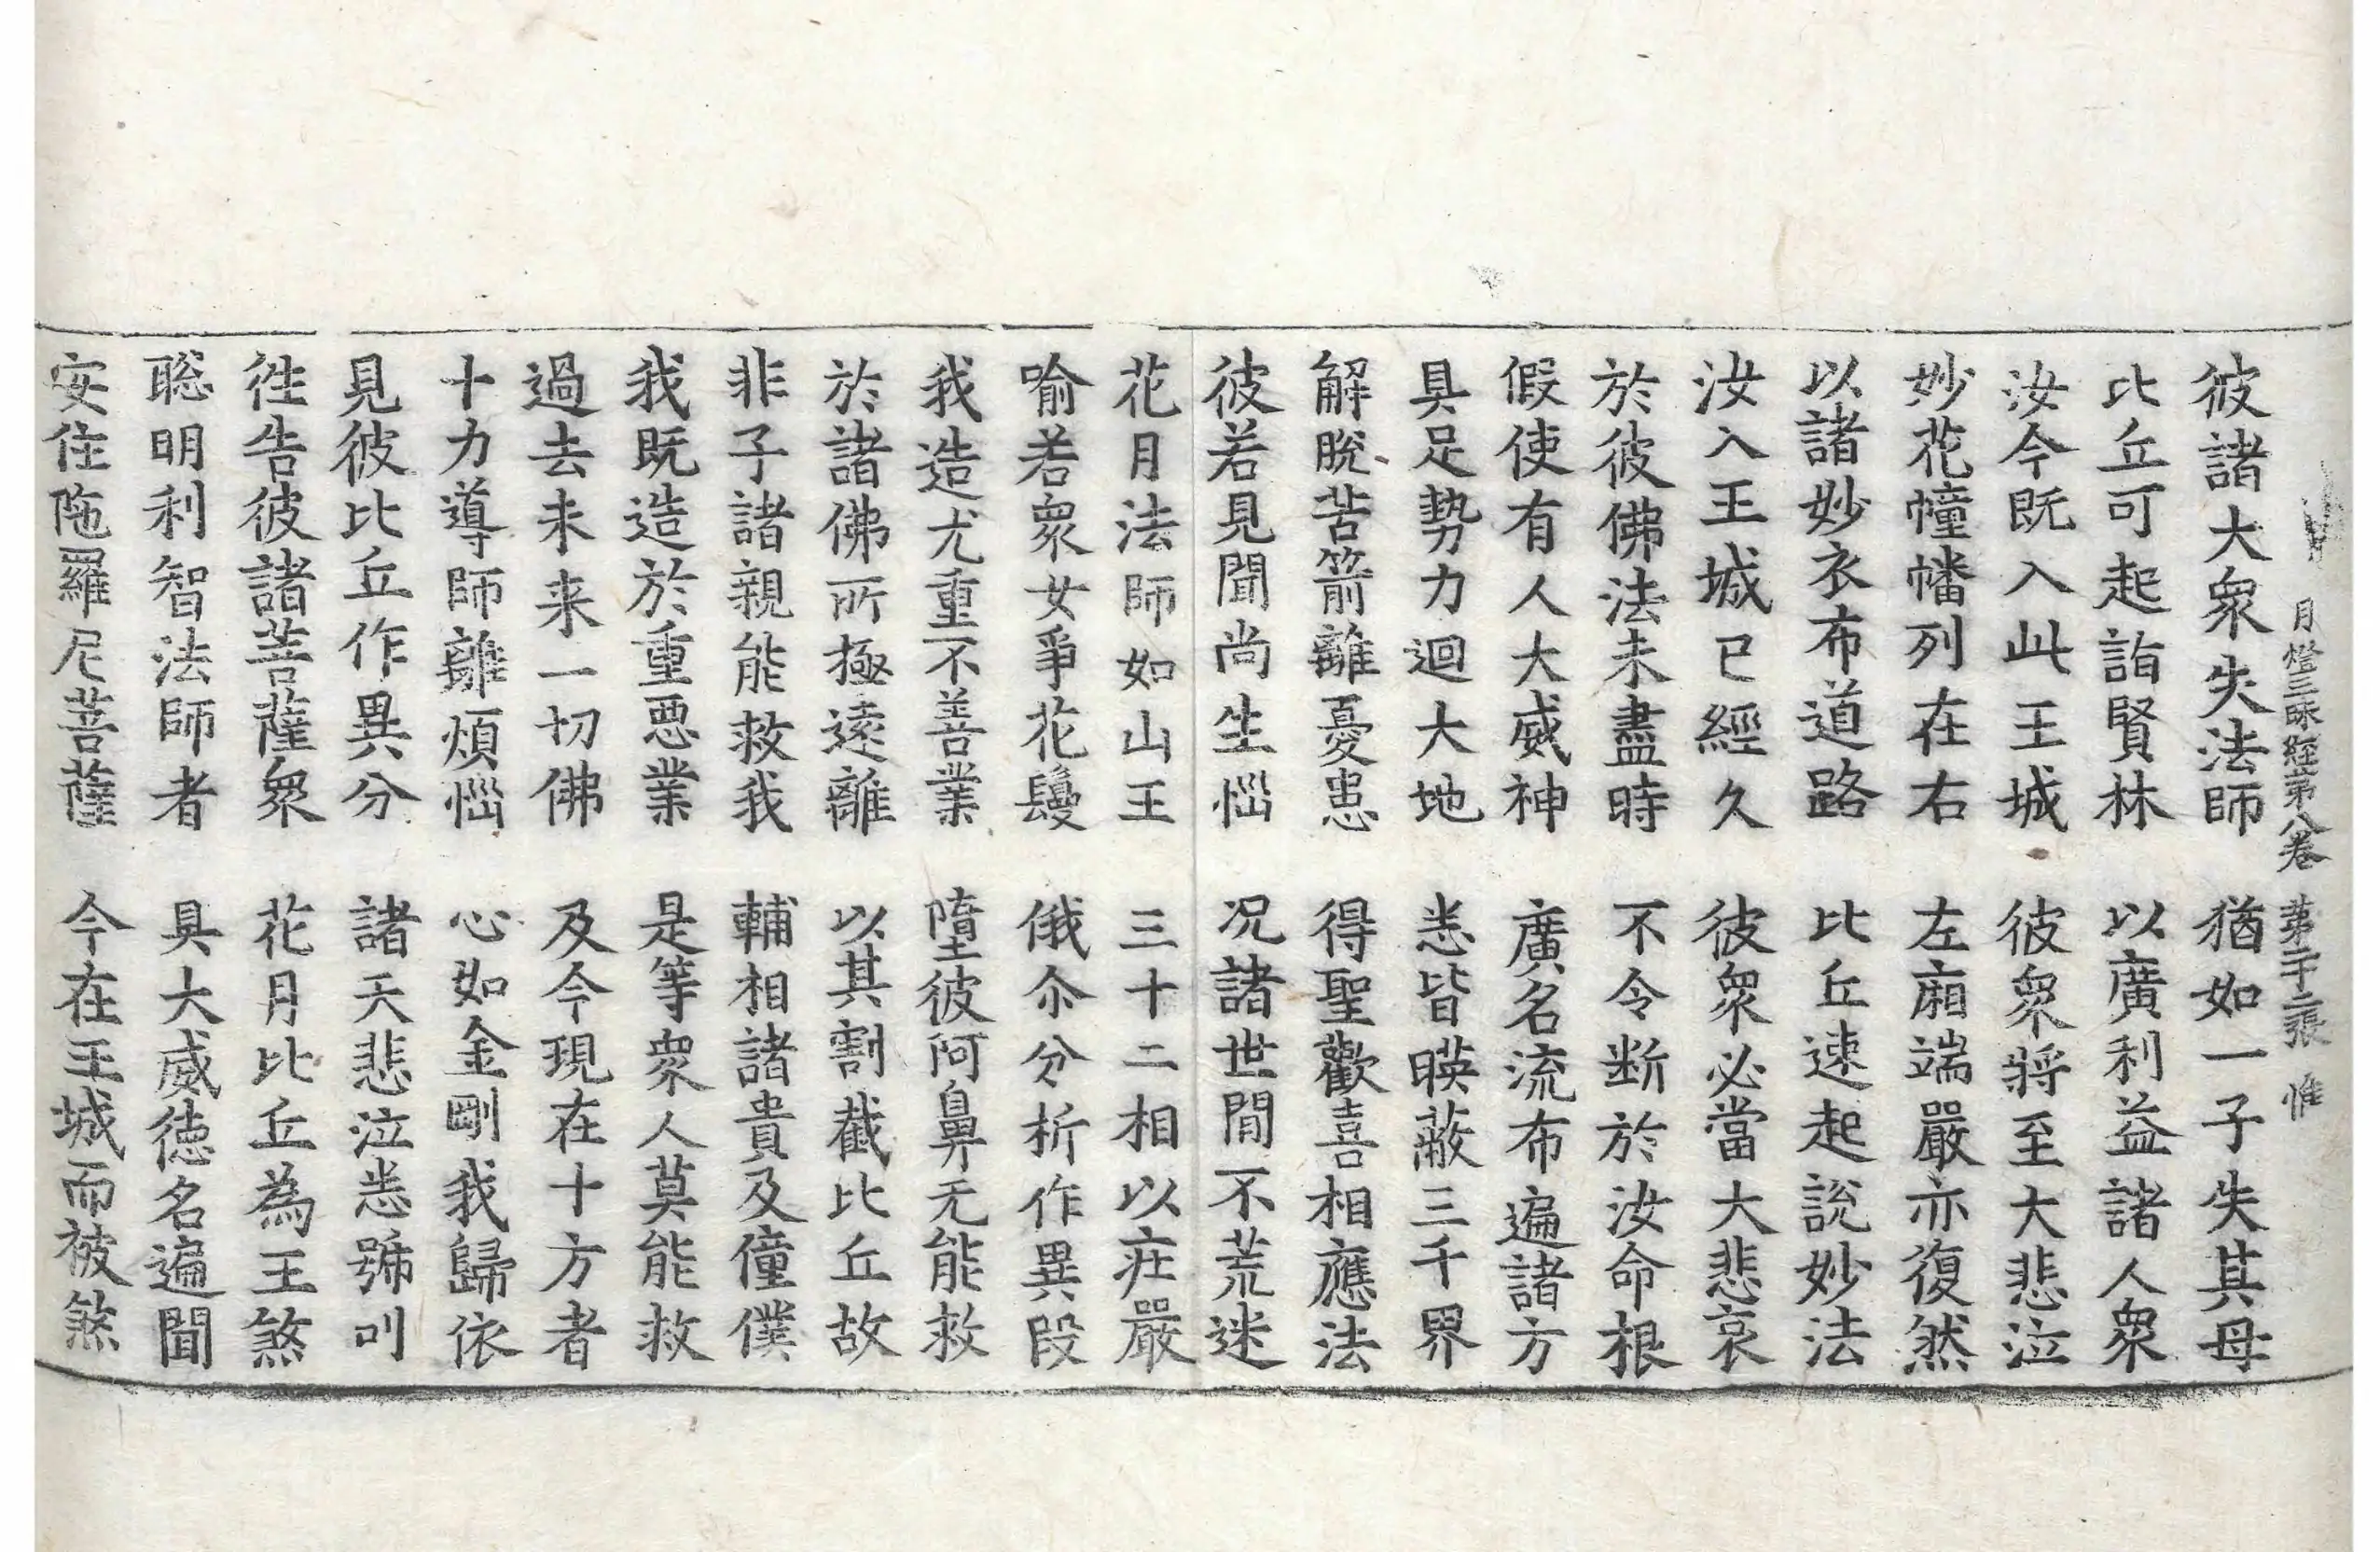 月燈三昧經第八卷 第二十二張 惟
彼諸大衆失法師 猶如一子失其母
比丘可起詣賢林 以廣利益諸人衆
汝今既入此王城 彼衆將至大悲泣
妙花幢幡列在右 左廂端嚴亦復然
以諸妙衣布道路 比丘速起説妙法
汝入王城已經久 彼衆必當大悲哀
於彼佛法未盡時 不令断於汝命根
假使有人大威神 廣名流布遍諸方
具足勢力迴大地 悉皆暎蔽三千界
解脫苦箭離憂患 得聖歡喜相應法
彼若見聞尚生惱 况諸世間不荒迷
花月法師如山王 三十二相以庄嚴
喻若衆女爭花鬘 俄尒分析作異段
我造尤重不善業 墮彼阿鼻无能救
於諸佛所極遠離 以其割截比丘故
非子諸親能救我 輔相諸貴及僮僕
我既造於重悪業 是等衆人莫能救
過去未来一切佛 及今現在十方者
十力導師離煩惱 心如金剛我歸依
見彼比丘作異分 諸天悲泣悉號叫
徃告彼諸菩薩衆 花月比丘為王煞
聡明利智法師者 具大威德名遍聞
安住陁羅尼菩薩 今在王城而被煞